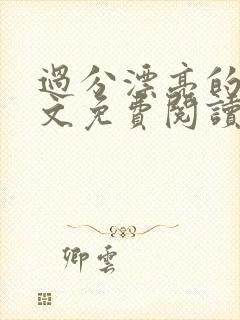 過分漂亮的
文免費閱讀
卿雲